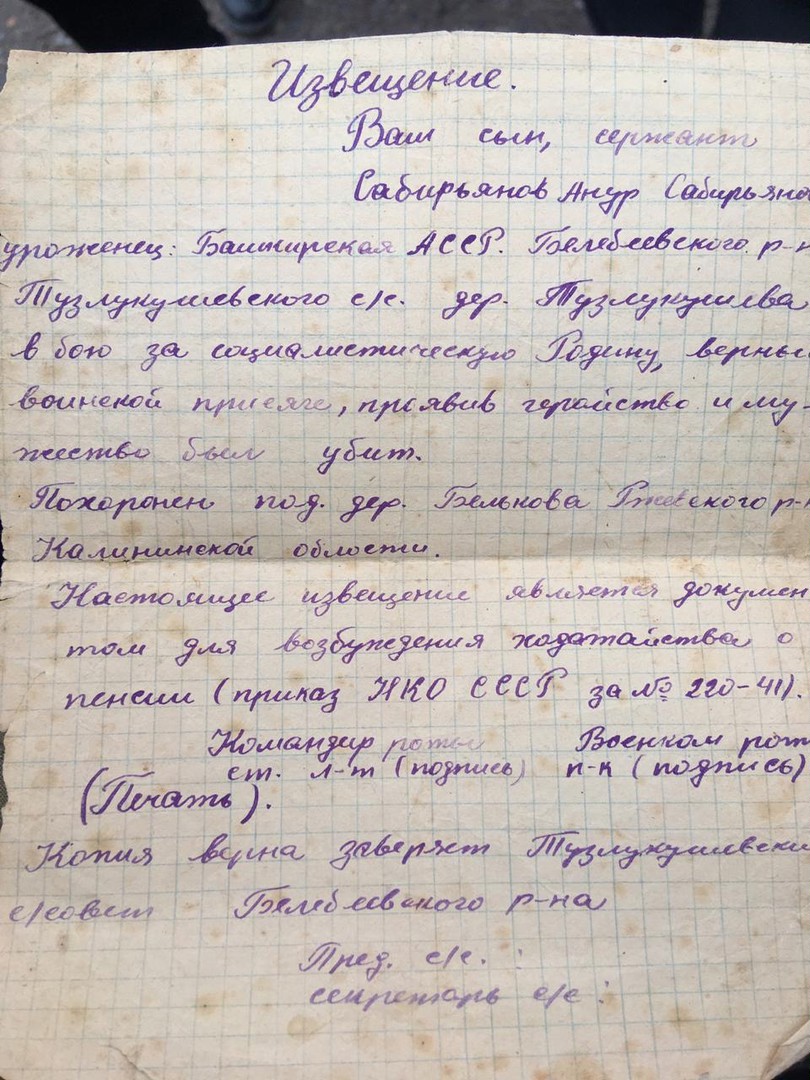 Извещение.
Ваш сын, сержант
Сабирьянов Анур Сабирьяно
уроженец: Башкирская АССР. Белебеевского р-н
Тузлукушевского с/с. дер. Тузлукушева
в бою за социалистическую Родину, верный
воинской присяге, проявив геройство и му-
жество был убит.
Похоронен под. дер. Белькова Ржевского р-н
Калининской области.
Настоящее извещение является докумен
том для возбуждения ходатайства о
пенсии (приказ НКО СССР за № 220-41).
Командир роты Военком рот
ст. л-т (подпись) п-к (подпись)
(Печать).
Копия верна заверяет Тузлукушевски
с/совет Белебеевского р-на
Пред. с/с. :
секретарь с/с :